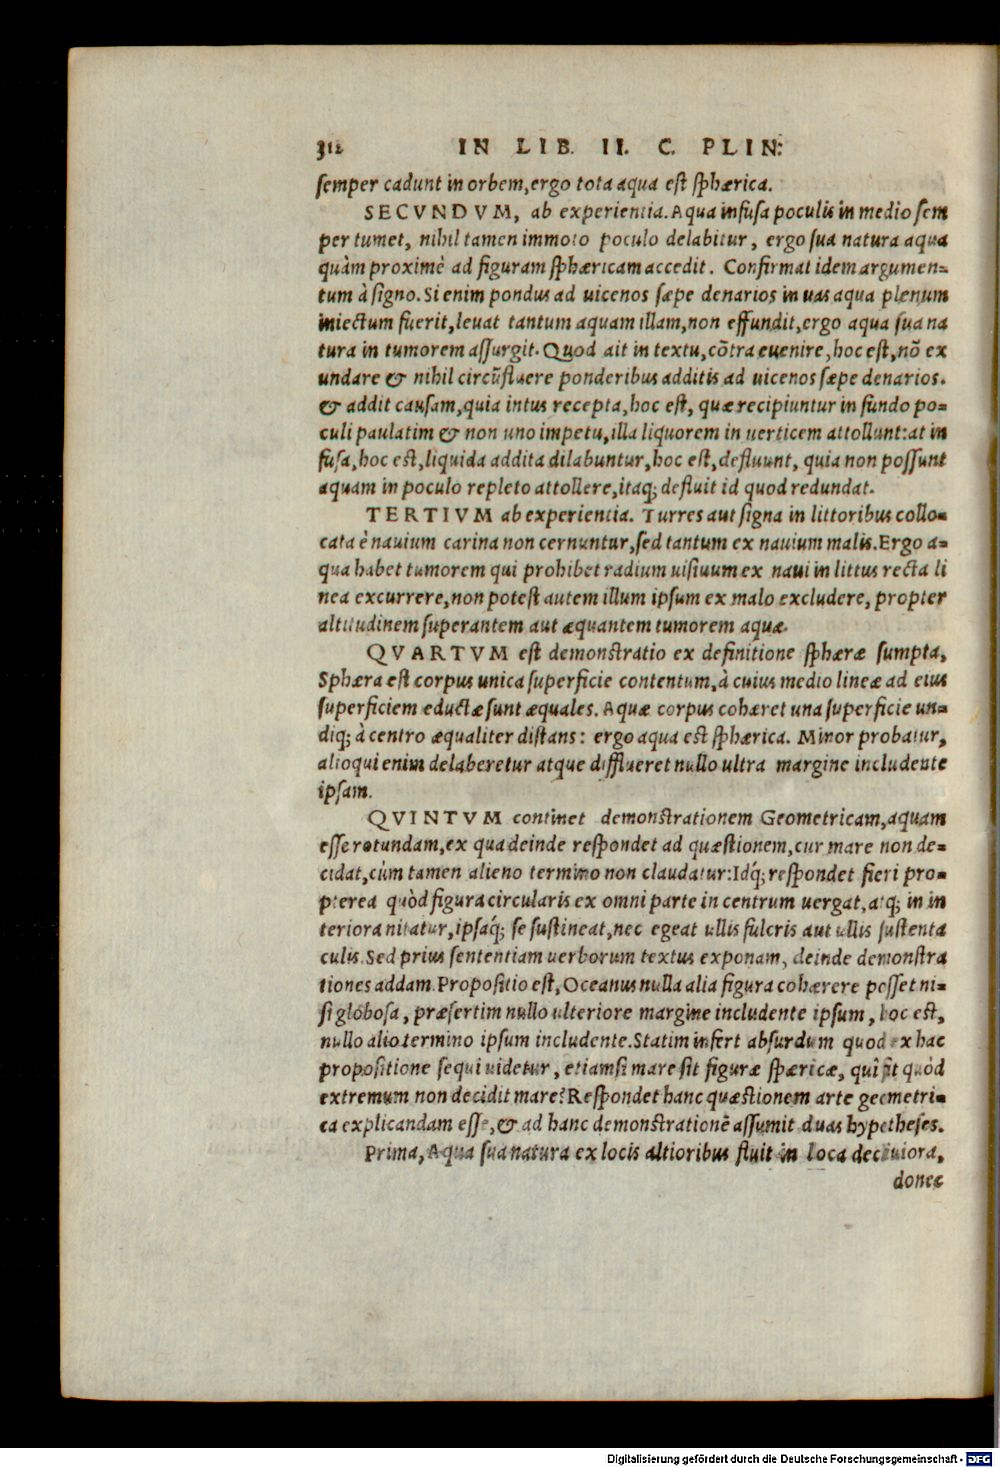 312 IN LIB. II. C. PLIN:
semper cadunt in orbem, ergo tota aqua est sphærica.
SECVNDVM, ab experientia. Aqua infusa poculis in medio sem
per tumet, nihil tamen immoto poculo delabitur, ergo sua natura aqua
quàm proximè ad figuram sphæricam accedit. Confirmat idem argumen-
tum à signo. Si enim pondus ad uicenos sæpe denarios in uas aqua plenum
iniectum fuerit, leuat tantum aquam illam, non effundit, ergo aqua sua na
tura in tumorem assurgit. Quod ait in textu, cõtra euenire, hoc est, nõ ex
undare & nihil circũfluere ponderibus additis ad uicenos sæpe denarios.
& addit causam, quia intus recepta, hoc est, quæ recipiuntur in fundo po-
culi paulatim & non uno impetu, illa liquorem in uerticem attollunt: at in
fusa, hoc est, liquida addita dilabuntur, hoc est, defluunt, quia non possunt
aquam in poculo repleto attollere, itaq; defluit id quod redundat.
TERTIVM ab experientia. Turres aut signa in littoribus collo-
cata è nauium carina non cernuntur, sed tantum ex nauium malis. Ergo a-
qua habet tumorem qui prohibet radium uisiuum ex naui in littus recta li
nea excurrere, non potest autem illum ipsum ex malo excludere, propter
altitudinem superantem aut æquantem tumorem aquæ.
QVARTVM est demonstratio ex definitione sphæræ sumpta,
Sphæra est corpus unica superficie contentum, à cuius medio lineæ ad eius
superficiem eductæ sunt æquales. Aquæ corpus cohæret una superficie un-
diq; à centro æqualiter distans: ergo aqua est sphærica. Minor probatur,
alioqui enim delaberetur atque difflueret nullo ultra margine includente
ipsam.
QVINTVM continet demonstrationem Geometricam, aquam
esse rotundam, ex qua deinde respondet ad quæstionem, cur mare non de-
cidat, cùm tamen alieno termino non claudatur: Idq́; respondet fieri pro-
pterea quòd figura circularis ex omni parte in centrum uergat, atq; in in
teriora nitatur, ipsaq́; se sustineat, nec egeat ullis fulcris aut ullis sustenta
culis. Sed prius sententiam uerborum textus exponam, deinde demonstra
tiones addam. Propositio est, Oceanus nulla alia figura cohærere posset ni-
si globosa, præsertim nullo ulteriore margine includente ipsum, hoc est,
nullo alio termino ipsum includente. Statim infert absurdum quod ex hac
propositione sequi uidetur, etiamsi mare sit figuræ spæricæ, quî fit quòd
extremum non decidit mare? Respondet hanc quæstionem arte geometri-
ca explicandam esse, & ad hanc demonstrationẽ assumit duas hypotheses.
Prima, Aqua sua natura ex locis altioribus fluit in loca decliuiora,
donec
Digitalisierung gefördert durch die Deutsche Forschungsgemeinschaft - DFG